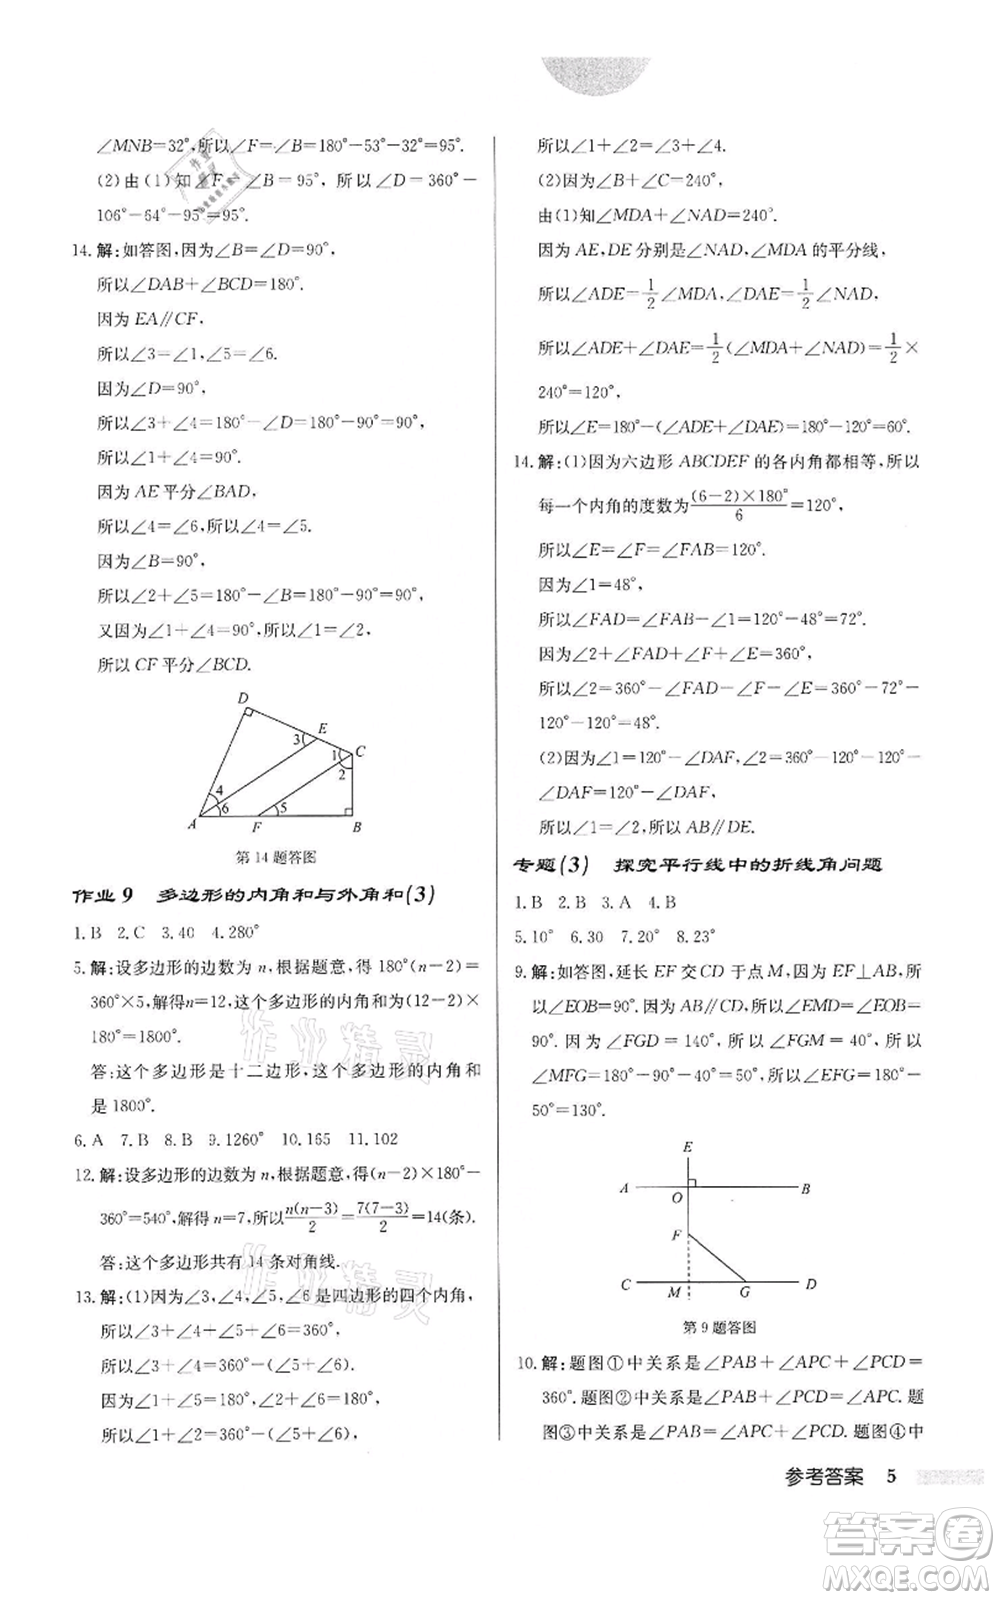 ∠MNB=32°,所以∠F=∠B=180°-53°-32°=95°.
(2)由(1)知∠F=∠B=95°,所以∠D=360°-
106°-64°-95°=95°.
14.解:如答图,因为∠B=∠D=90°,
所以∠DAB+∠BCD=180°.
因为EA∥CF,
所以∠3=∠1,∠5=∠6.
因为∠D=90°,
所以∠3+∠4=180°-∠D=180°-90°=90°,
所以∠1+∠4=90°.
因为AE平分∠BAD,
所以∠4=∠6,所以∠4=∠5.
因为∠B=90°,
所以∠2+∠5=180°-∠B=180°-90°=90°,
又因为∠1+∠4=90°,所以∠1=∠2,
所以CF平分∠BCD.
D
E
3
C
1
2
4
6
5
A
F
B
第14题答图
作业9 多边形的内角和与外角和(3)
1.B 2.C 3.40 4.280°
5.解:设多边形的边数为n,根据题意,得180°(n-2)=
360°×5,解得n=12,这个多边形的内角和为(12-2)×
180°=1800°.
答:这个多边形是十二边形,这个多边形的内角和
是1800°.
6.A 7.B 8.B 9.1260° 10.165 11.102
12.解:设多边形的边数为n,根据题意,得(n-2)×180°-
360°=540°,解得n=7,所以n(n-3)/2=7(7-3)/2=14(条).
答:这个多边形共有14条对角线.
13.解:(1)因为∠3,∠4,∠5,∠6是四边形的四个内角,
所以∠3+∠4+∠5+∠6=360°,
所以∠3+∠4=360°-(∠5+∠6).
因为∠1+∠5=180°,∠2+∠6=180°,
所以∠1+∠2=360°-(∠5+∠6),
所以∠1+∠2=∠3+∠4.
(2)因为∠B+∠C=240°,
由(1)知∠MDA+∠NAD=240°.
因为AE,DE分别是∠NAD,∠MDA的平分线,
所以∠ADE=1/2∠MDA,∠DAE=1/2∠NAD,
所以∠ADE+∠DAE=1/2(∠MDA+∠NAD)=1/2×
240°=120°,
所以∠E=180°-(∠ADE+∠DAE)=180°-120°=60°.
14.解:(1)因为六边形ABCDEF的各内角都相等,所以
每一个内角的度数为(6-2)×180°/6=120°,
所以∠E=∠F=∠FAB=120°.
因为∠1=48°,
所以∠FAD=∠FAB-∠1=120°-48°=72°.
因为∠2+∠FAD+∠F+∠E=360°,
所以∠2=360°-∠FAD-∠F-∠E=360°-72°-
120°-120°=48°.
(2)因为∠1=120°-∠DAF,∠2=360°-120°-120°-
∠DAF=120°-∠DAF,
所以∠1=∠2,所以AB∥DE.
专题(3) 探究平行线中的折线角问题
1.B 2.B 3.A 4.B
5.10° 6.30 7.20° 8.23°
9.解:如答图,延长EF交CD于点M,因为EF⊥AB,所
以∠EOB=90°.因为AB∥CD,所以∠EMD=∠EOB=
90°.因为∠FGD=140°,所以∠FGM=40°,所以
∠MFG=180°-90°-40°=50°,所以∠EFG=180°-
50°=130°.
E
A
O
B
F
C
M
G
D
第9题答图
10.解:题图①中关系是∠PAB+∠APC+∠PCD=
360°.题图②中关系是∠PAB+∠PCD=∠APC.题
图③中关系是∠PAB=∠APC+∠PCD.题图④中
参考答案 5
作业精灵
作业精灵
答案卷
MXQE.COM